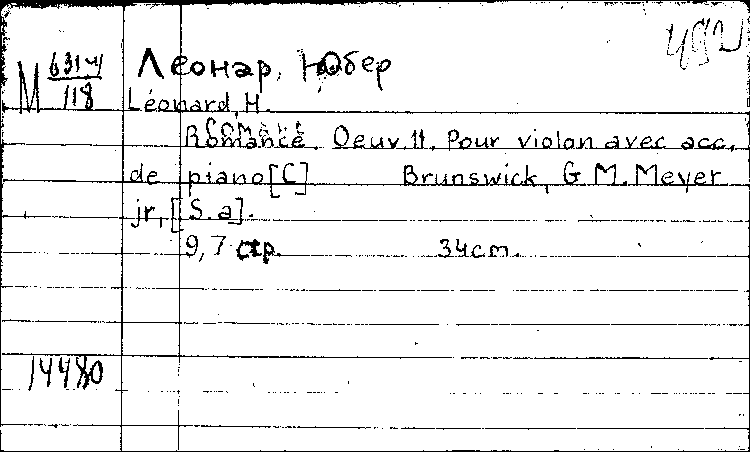 М 631м/118 Леонар, Юбер
Léonard, H.
Romance. Oeuv. 11. Pour violon avec acc.
de piano [C] Brunswick, G. M. Meyer
jr, [S. a].
9, 7 стр. 34cm.
14480